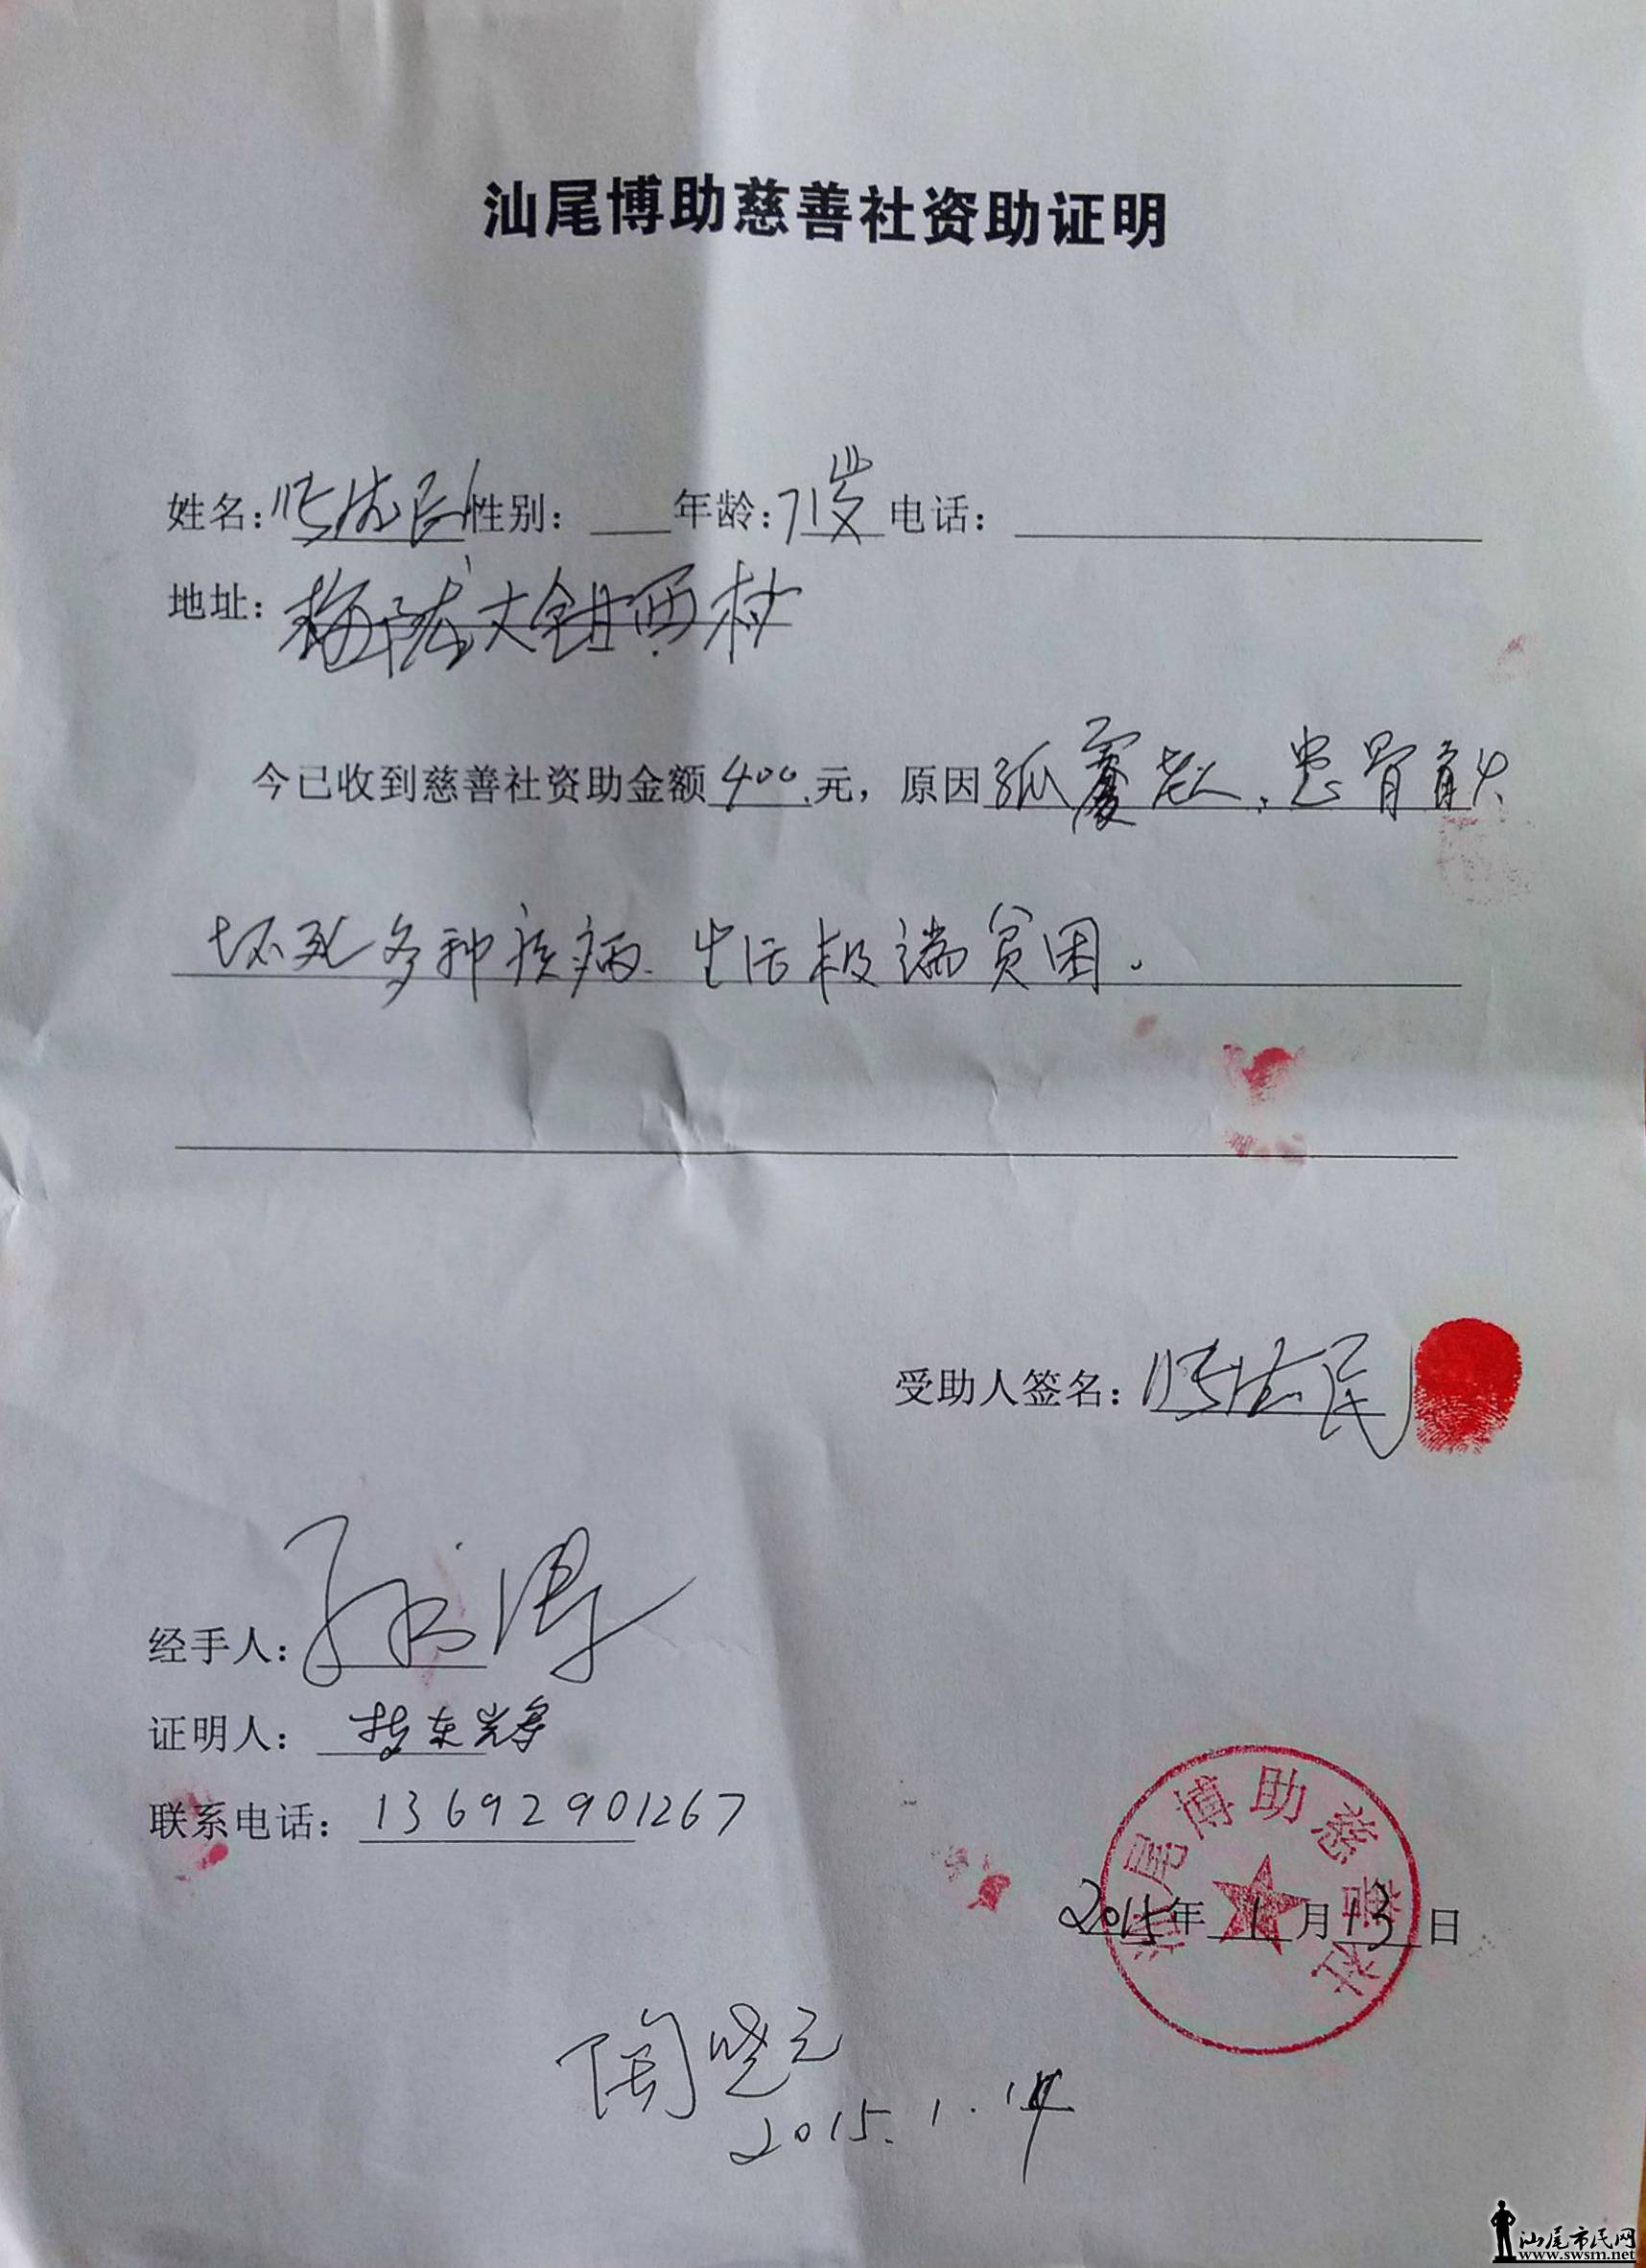 汕尾博助慈善社资助证明
姓名: 性别: 年龄:71岁 电话:
地址: 梅陇大钳西村
今已收到慈善社资助金额400元，原因孤寡老人,患骨龄
坏死多种疾病.生活极端贫困。
受助人签名:
经手人:
证明人:
联系电话: 13692901267
汕尾博助慈善社
2015年1月13日
陶晓云
2015.1.14
汕尾市民网
www.swsm.net